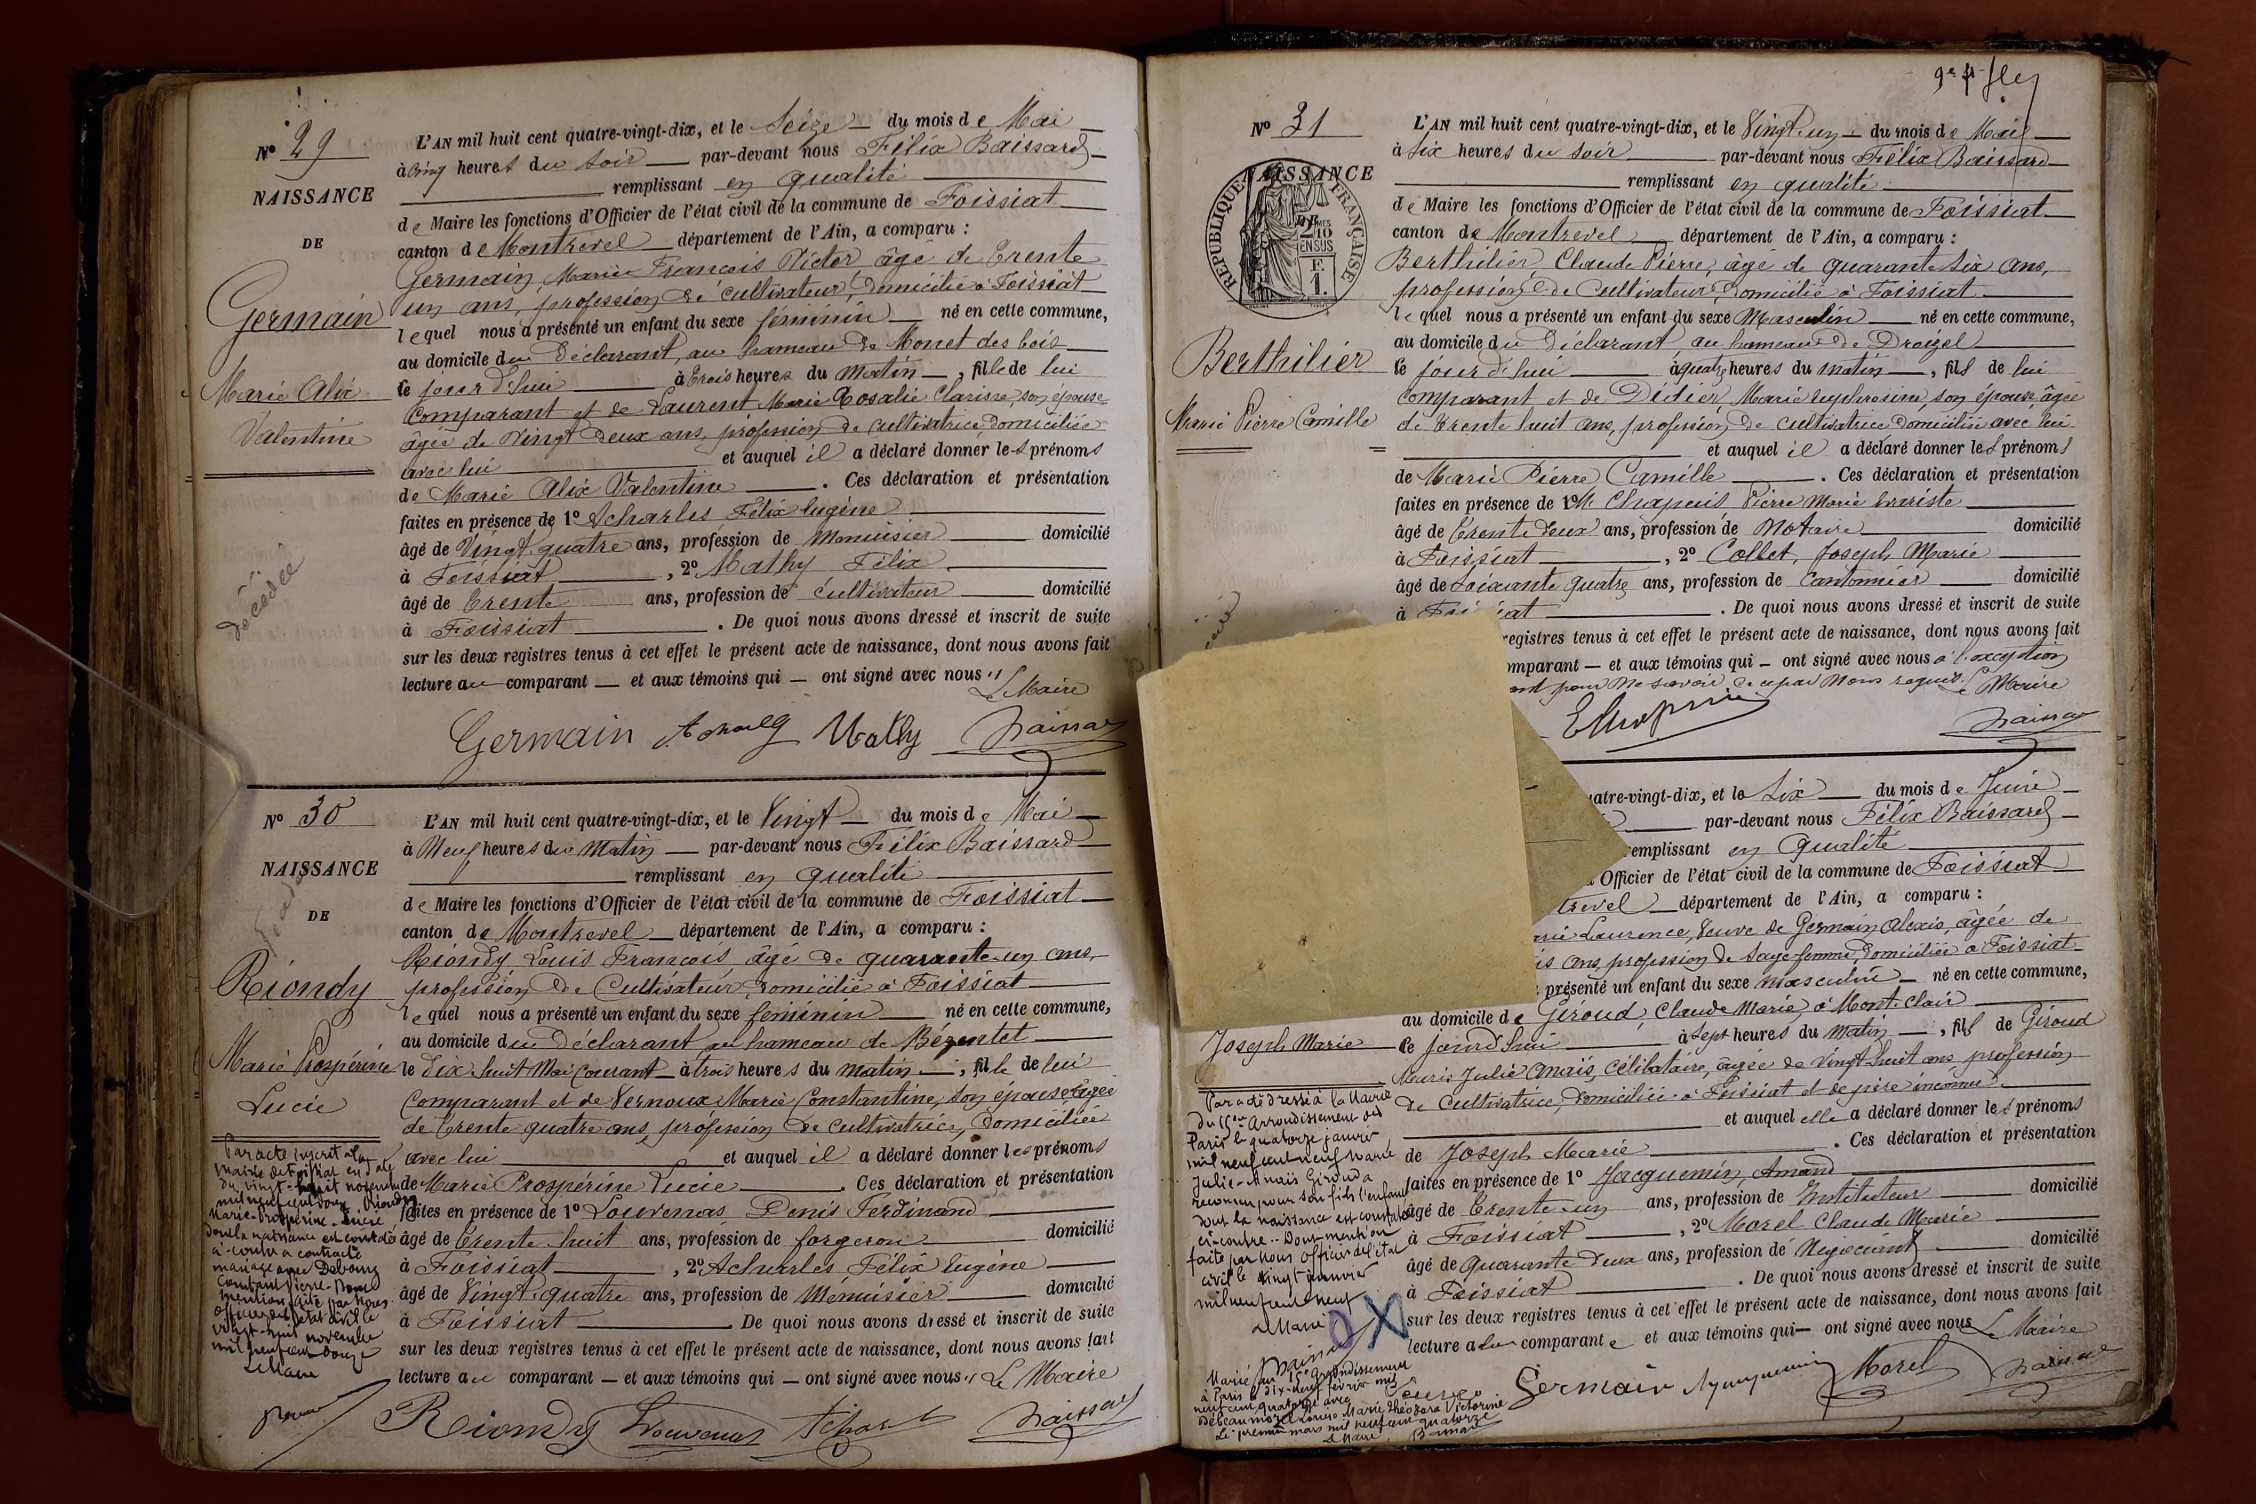 N° 29
NAISSANCE
DE
Germain
Marie Alix
Valentine
décédée
L'AN mil huit cent quatre-vingt-dix, et le Seize du mois de Mai
à cinq heures du soir par-devant nous Félix Baissard
remplissant en qualité
de Maire les fonctions d'Officier de l'état civil de la commune de Foissiat
canton de Montrevel département de l'Ain, a comparu :
Germain, Marie François Victor âgé de trente
un ans, profession de cultivateur, domicilié à Foissiat
lequel nous a présenté un enfant du sexe féminin né en cette commune,
au domicile du Déclarant, au hameau de Monet des bois
le jourd'hui à trois heures du Matin, fille de lui
Comparant et de Laurent Marie Rosalie Clarisse, son épouse
âgée de Vingt Deux ans, profession de cultivatrice domiciliée
avec lui et auquel il a déclaré donner les prénoms
de Marie Alix Valentine. Ces déclaration et présentation
faites en présence de 1° Acharles Félix Eugène
âgé de Vingt quatre ans, profession de Menuisier domicilié
à Foissiat, 2° Mathy Félix
âgé de trente ans, profession de cultivateur domicilié
à Foissiat. De quoi nous avons dressé et inscrit de suite
sur les deux registres tenus à cet effet le présent acte de naissance, dont nous avons fait
lecture au comparant — et aux témoins qui — ont signé avec nous
Le Maire
Germain Mathy Baissard
N° 30
NAISSANCE
DE
Riondy
Marie Prospérine
Lucie
Par acte inscrit à la
mairie de Foissiat en date
du vingt-huit novembre
mil neuf cent douze Riondy
Marie-Prospérine-Lucie
dont la naissance est constatée
ci-contre a contracté
mariage avec
Pierre
mention faite par Nous
officier de l'état civil le
vingt-huit novembre
mil neuf cent douze
Le Maire
L'AN mil huit cent quatre-vingt-dix, et le Vingt du mois de Mai
à Neuf heures du Matin par-devant nous Félix Baissard
remplissant en qualité
de Maire les fonctions d'Officier de l'état civil de la commune de Foissiat
canton de Montrevel département de l'Ain, a comparu :
Riondy Louis François, âgé de quarante-un ans,
profession de Cultivateur, domicilié à Foissiat
lequel nous a présenté un enfant du sexe féminin né en cette commune,
au domicile du Déclarant au hameau de Bézentet
le dix huit Mai Courant à trois heures du matin, fille de lui
Comparant et de Vernoux Marie Constantine, son épouse âgée
de trente quatre ans, profession de cultivatrice, domiciliée
avec lui et auquel il a déclaré donner les prénoms
de Marie Prospérine Lucie. Ces déclaration et présentation
faites en présence de 1° Louvenas Denis Ferdinand
âgé de trente huit ans, profession de forgeron domicilié
à Foissiat, 2° Acharles Félix Eugène
âgé de Vingt quatre ans, profession de Menuisier domicilié
à Foissiat. De quoi nous avons dressé et inscrit de suite
sur les deux registres tenus à cet effet le présent acte de naissance, dont nous avons fait
lecture au comparant — et aux témoins qui — ont signé avec nous Le Maire
Riondy Louvenas Baissard
N° 31
NAISSANCE
RÉPUBLIQUE FRANÇAISE
2/10 EN SUS
F. 1.
Berthilier
Marie Pierre Camille
L'AN mil huit cent quatre-vingt-dix, et le Vingt-un du mois de Mai
à six heures du soir par-devant nous Félix Baissard
remplissant en qualité
de Maire les fonctions d'Officier de l'état civil de la commune de Foissiat
canton de Montrevel département de l'Ain, a comparu :
Berthilier Claude Pierre, âgé de quarante six ans,
profession de Cultivateur, domicilié à Foissiat
lequel nous a présenté un enfant du sexe Masculin né en cette commune,
au domicile du Déclarant au hameau de Droizel
le jourd'hui à quatre heures du matin, fils de lui
comparant et de Didier Marie Euphrosine, son épouse âgée
de trente huit ans, profession de cultivatrice domiciliée avec lui
et auquel il a déclaré donner les prénoms
de Marie Pierre Camille. Ces déclaration et présentation
faites en présence de 1° M. Chapuis, Pierre Marie Evariste
âgé de trente deux ans, profession de Notaire domicilié
à Foissiat, 2° Collet, Joseph Marie
âgé de soixante quatre ans, profession de Cantonnier domicilié
à Foissiat. De quoi nous avons dressé et inscrit de suite
registres tenus à cet effet le présent acte de naissance, dont nous avons fait
omparant — et aux témoins qui — ont signé avec nous à l'exception
pour ne savoir de ce par Nous requis. Le Maire
E Chapuis Baissard
atre-vingt-dix, et le Six du mois de Juin
par-devant nous Félix Baissard
remplissant en qualité
Officier de l'état civil de la commune de Foissiat
trevel département de l'Ain, a comparu :
arie Laurence, Veuve de Germain Alexis, âgée de
is ans, profession de Sage-femme, domiciliée à Foissiat
présenté un enfant du sexe masculin né en cette commune,
au domicile de Giroud, Claude Marie, à Mont-clair
le jourd'hui à sept heures du matin, fils de Giroud
Marie Julie Anaïs, célibataire, âgée de vingt-huit ans profession
de cultivatrice, domiciliée à Foissiat et de père inconnu.
et auquel elle a déclaré donner les prénoms
de Joseph Marie. Ces déclaration et présentation
faites en présence de 1° Jacquemin, Amand
âgé de trente-un ans, profession de Instituteur domicilié
à Foissiat, 2° Morel Claude Marie
âgé de quarante deux ans, profession de Négociant domicilié
à Foissiat. De quoi nous avons dressé et inscrit de suite
sur les deux registres tenus à cet effet le présent acte de naissance, dont nous avons fait
lecture à la comparante et aux témoins qui — ont signé avec nous Le Maire
Germain Jacquemin Morel Baissard
Joseph Marie
Par acte dressé à la Mairie
du 15me Arrondissement de
Paris le quatorze janvier
mil neuf cent neuf Marie
Julie-Anaïs Giroud a
reconnu pour son fils l'enfant
dont la naissance est constatée
ci-contre. Dont mention
faite par Nous Officier de l'état
civil le vingt janvier
mil neuf cent neuf
Le Maire
Marié au 15e arrondissement
à Paris le dix-neuf février mil
neuf cent quatorze avec
Louise Marie Théodora Victorine
Le premier mars mil neuf cent quatorze
Le Maire